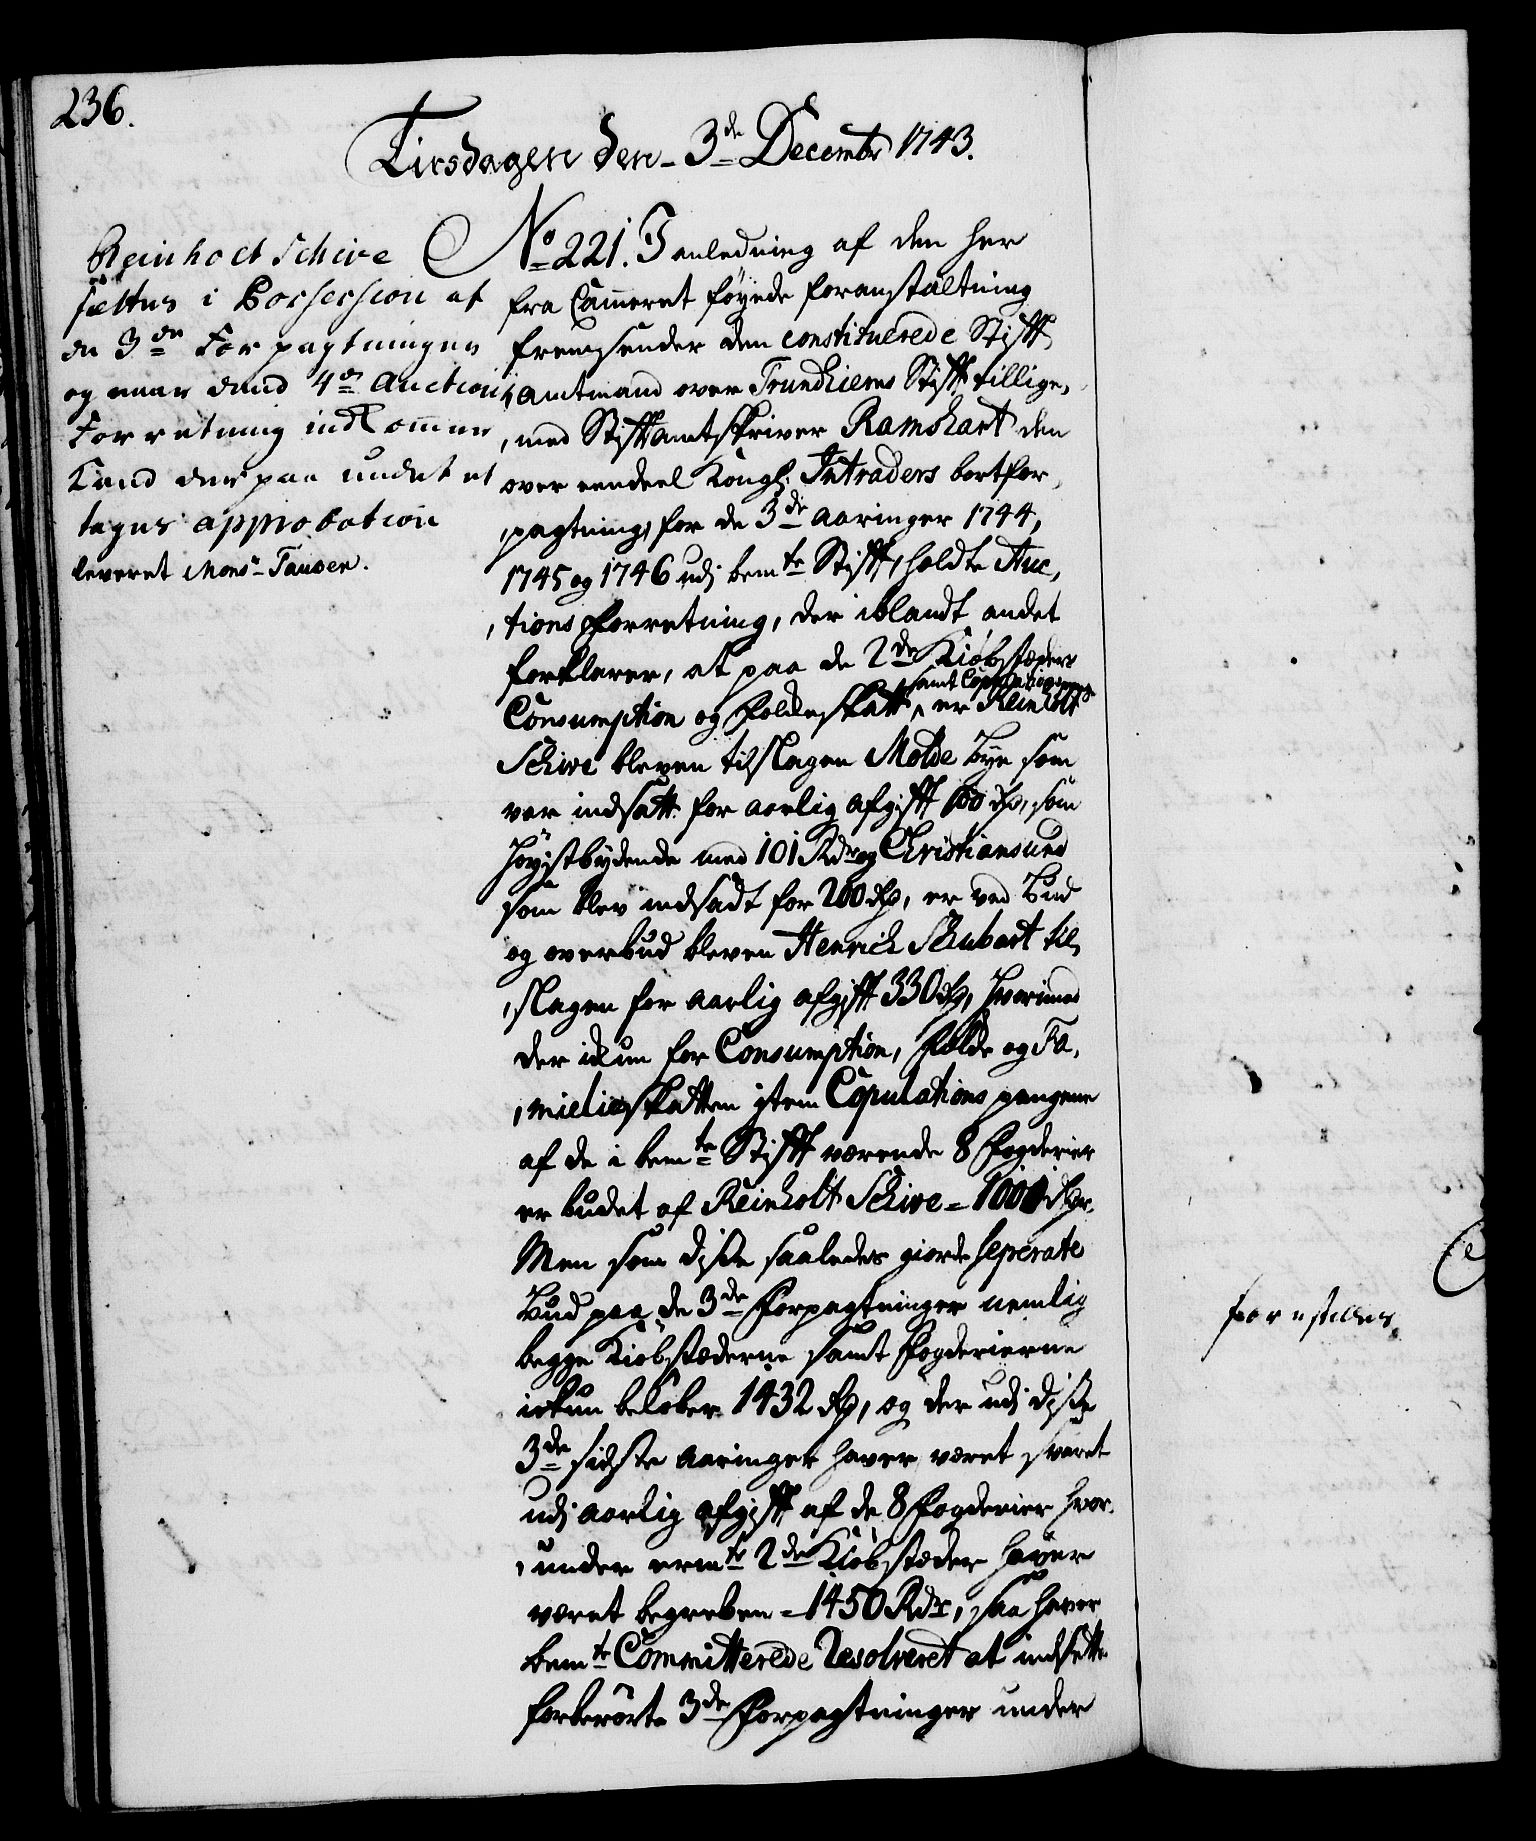 236.
Tirsdagen den 3de Decembr 1743.
Reinholt Schive
settes i Possession af
de 3de Forpagtninger
og naar dend 4de Auctions
Forretning indkommer
Kand derpaa Undet et
tages approbation
leveret Mons. Tausen.
No 221. I anledning af den her
fra Cammeret føyede foranstaltning
fremsender den constituerede Stift
amtmand over Trundhiems Stift tillige,
,med Stiftamtskriver Ramshart den
over eendeel Kongl. Intraders bortfor,
,pagtning, for de 3de aaringer 1744,
1745 og 1746 udj bemte Stift, holdte Auc,
,tions forretning, der iblandt andet
forklarer, at paa de 2de Kiøbstæders
samt Copulationspenge
Consumption og Folkeskatt, er Reinholt
Schive bleven tilslagen Molde Bye som
var indsatt for aarlig afgift 100 rdr, som
Høystbydende med 101 Rdr og Christiansund
som blev indsadt for 200 rdr, er ved Bud
og overbud bleven Henrich Schubart til,
,slagen for aarlig afgift 330 rdr, hvorimod
der ickun for Consumption, Folke og Fa,
,mielieskatten item Copulations pengene
af de i bemte Stift værende 8 Fogderier
er budet af Reinholt Schive = 1001 rdr.
Men som disse saaledes giorde seperate
Bud paa de 3de Forpagtninger nemlig
begge Kiøbstæderne samt Fogderierne
ickun beløber 1432 rdr, og der udj disse
3de sidste aaringer haver været svaret
udj aarlig afgift af de 8 Fogderier hvor,
,under ermte 2de Kiøbstæder haver
været begreben = 1450 Rdr, saa haver
bemte Committerede Resolveret at indsette
forberørte 3de Forpagtninger under
forestilles